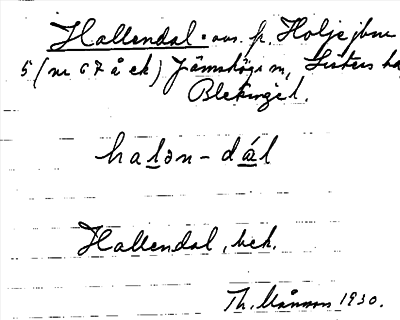 Hallendal. avs. fr. Holje jbnr
5 (nr 67 å ek) Jämshögs sn, Listers hd,
Blekinge l.
halən - dál
Hallendal, bek.
Th. Månsson 1930.